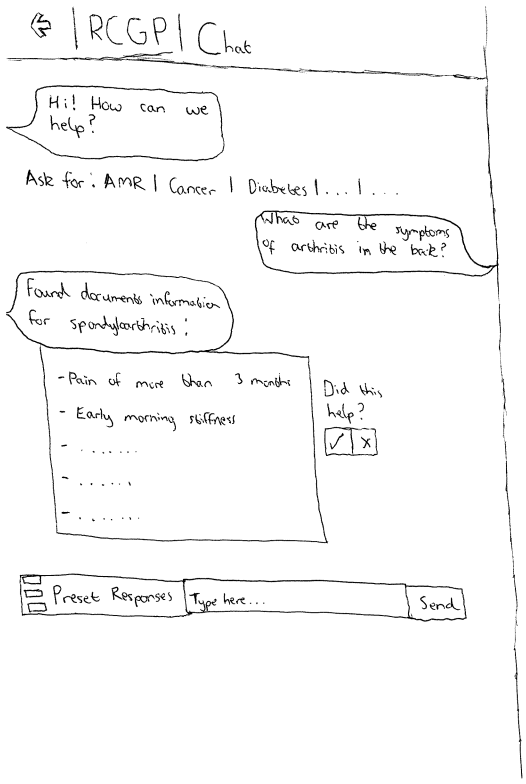 |RCGP| Chat
Hi! How can we
help?
Ask for: AMR | Cancer | Diabetes |...|...
What are the symptoms
of arthritis in the back?
Found documents information
for spondyloarthritis:
- Pain of more than 3 months
- Early morning stiffness
- .......
- ......
- .......
Did this
help?
✓ x
Preset Responses Type here... Send